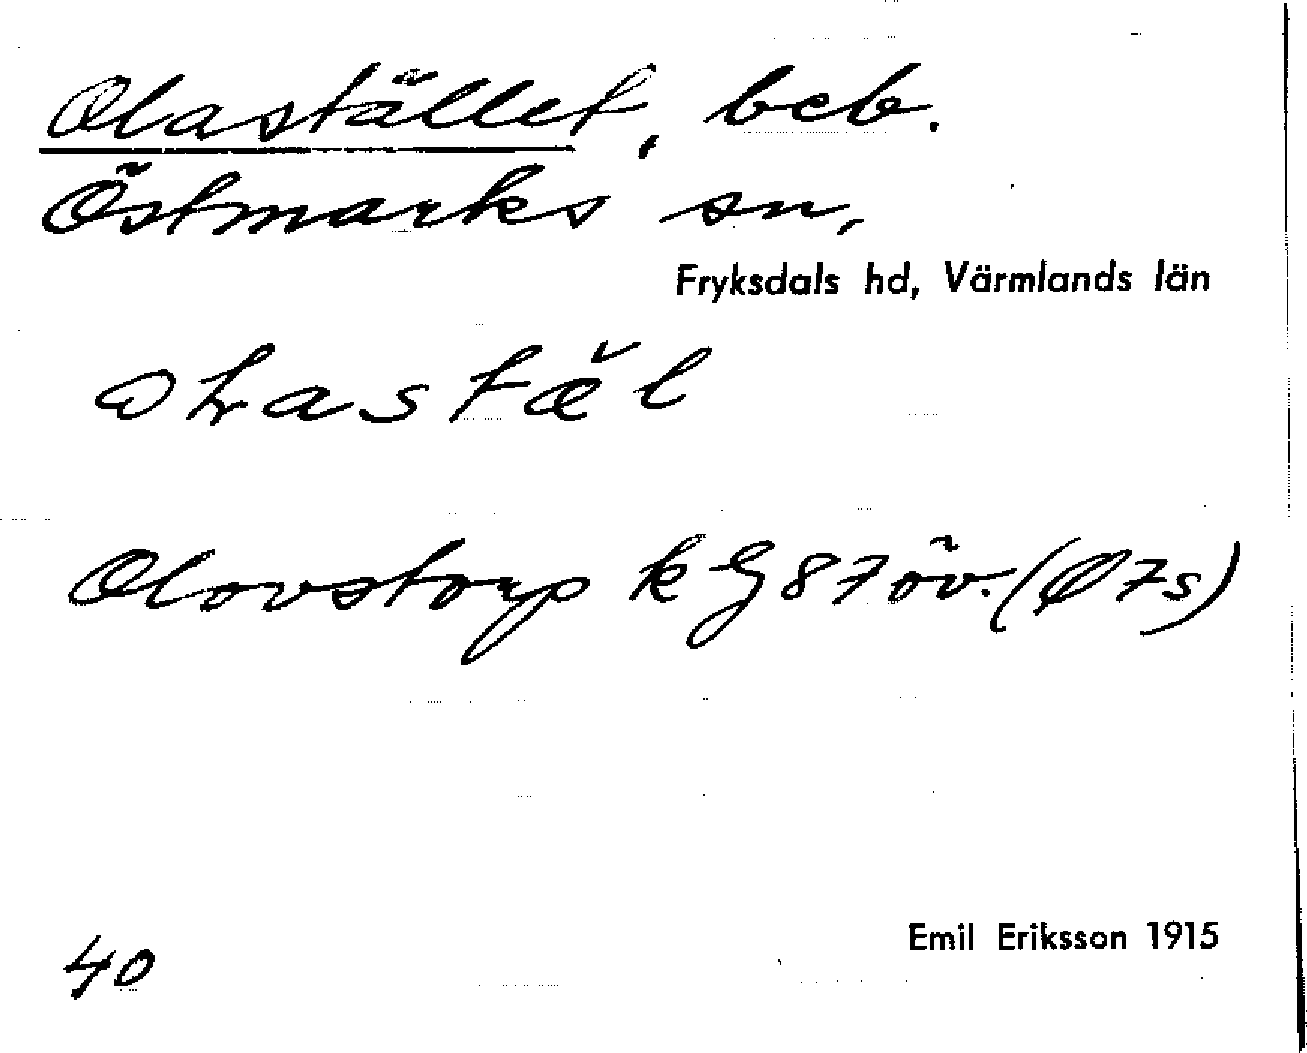 Olastället, beb.
Östmarks sn,
Fryksdals hd, Värmlands län
Olovstorp k G 87 öv. (Ø 7s)
40
Emil Eriksson 1915